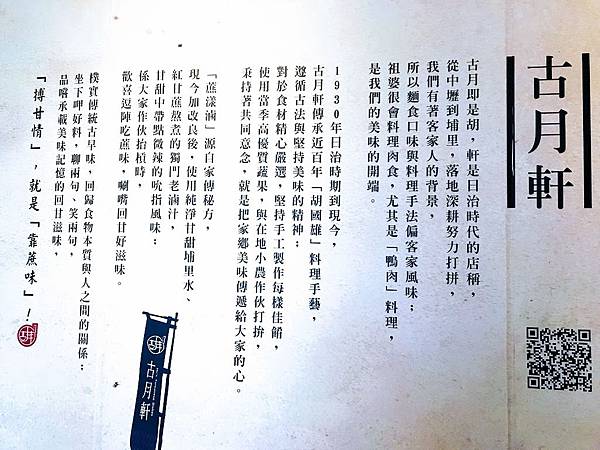 古月軒
古月即是胡，軒是日治時代的店稱，
從中壢到埔里，落地深耕努力打拼，
我們有著客家人的背景，
所以麵食口味與料理手法偏客家風味；
祖婆很會料理肉食，尤其是「鴨肉」料理，
是我們的美味的開端。
1930年日治時期到現今，
古月軒傳承近百年「胡國雄」料理手藝，
遵循古法與堅持美味的精神；
對於食材精心嚴選，堅持手工製作每樣佳餚，
使用當季高優質蔬果，與在地小農作伙打拚，
秉持著共同意念，就是把家鄉美味傳遞給大家的心。
「蔗漾滷」源自家傳秘方，
現今加改良後，使用純淨甘甜埔里水、
紅甘蔗熬煮的獨門老滷汁，
甘甜中帶點微辣的吮指風味；
係大家作伙抬槓時，
歡喜逗陣吃蔗味，唰嘴回甘好滋味。
樸實傳統古早味，回歸食物本質與人之間的關係；
坐下呷好料，聊兩句、笑兩句，
品嚐承載美味記憶的回甘滋味，
「搏甘情」，就是「靠蔗味」！
古月軒